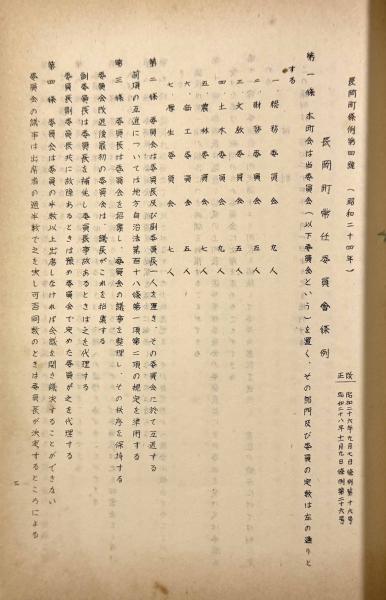 長岡町條例第四號 (昭和二十四年)
長岡町常任委員會條例
改正 昭和二十六年九月七日條例第十六号
昭和二十八年十一月九日條例第二十六号
第一條 本町会は当委員会(以下委員会という)を置く、その部門及び委員の定数は左の通りと
する
一、総務委員会 九人
二、財務委員会 五人
三、文教委員会 五人
四、土木委員会 七人
五、農林委員会 九人
六、商工委員会 七人
七、厚生委員会 七人
第二條 委員会は委員長及び副委員長一人を置きその委員会に於て互選する
前項の互選については地方自治法第百十八條第一項第二項の規定を準用する
第三條 委員長は委員会を招集し、委員会の議事を整理し、その秩序を保持する
委員会改選後最初の委員会は、議長がこれを招集する
副委員長は委員長を補佐し委員長事故あるときは之を代理する
委員長副委員長共に故障あるときは豫め委員会で定めた委員が之を代理する
第四條 委員会は委員の半数以上出席しなければ会議を開き議決することができない
委員会の議事は出席者の過半数で之を決し可否同数のときは委員長が決定するところによる